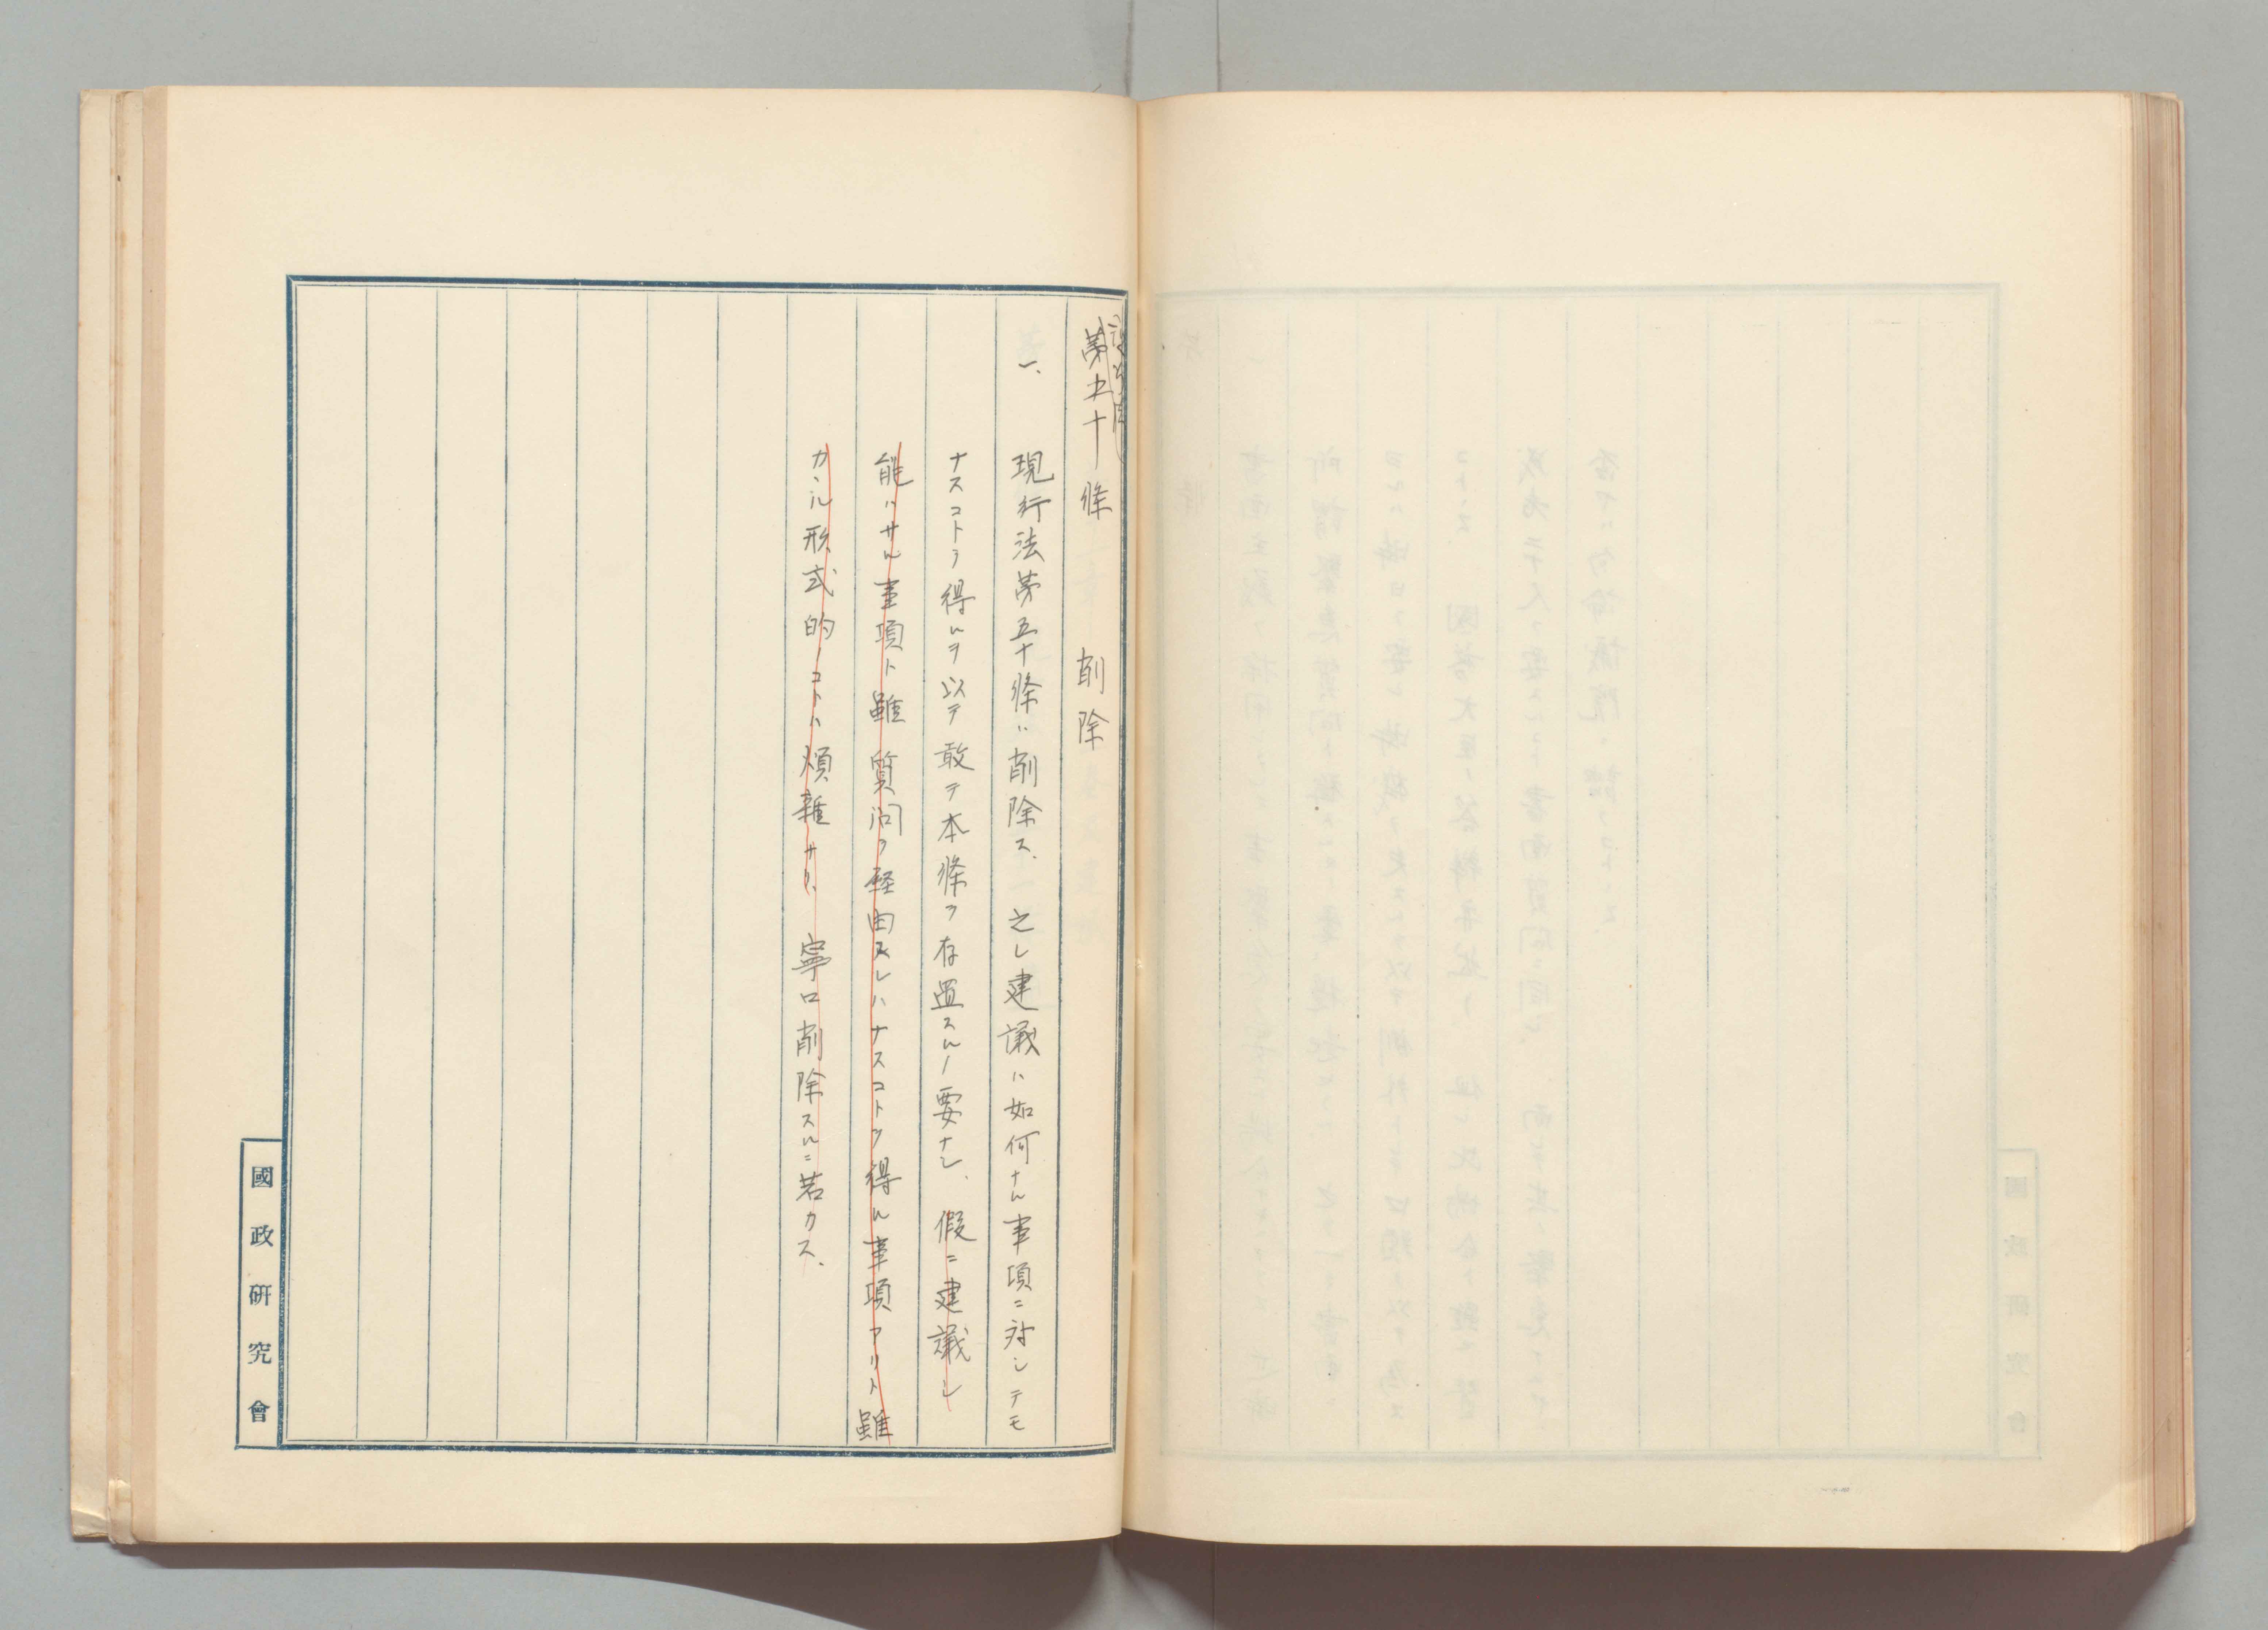 第五十條　削除
一、現行法第五十條ハ削除ス、之レ建議ハ如何ナル事項ニ対シテモ
ナスコトヲ得ルヲ以テ敢テ本條ヲ存置スルノ要ナシ、假ニ建議シ
能ハサル事項ト雖質問ヲ経由スレハナスコトヲ得ル事項アリト雖
カヽル形式的ノコトハ煩雜ナリ、寧ロ削除スルニ若カス、
國政研究會